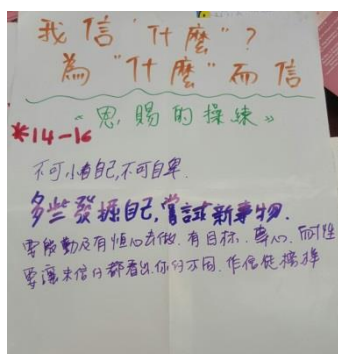 我信"什麼"?
為"什麼"而信
《恩賜的操練》
*14-16
不可小看自己,不可自卑.
多些發掘自己,嘗試新事物.
要殷勤及有恒心去做.有目标.專心.耐性
要讓未信的都看出你的不同.作信徒榜樣